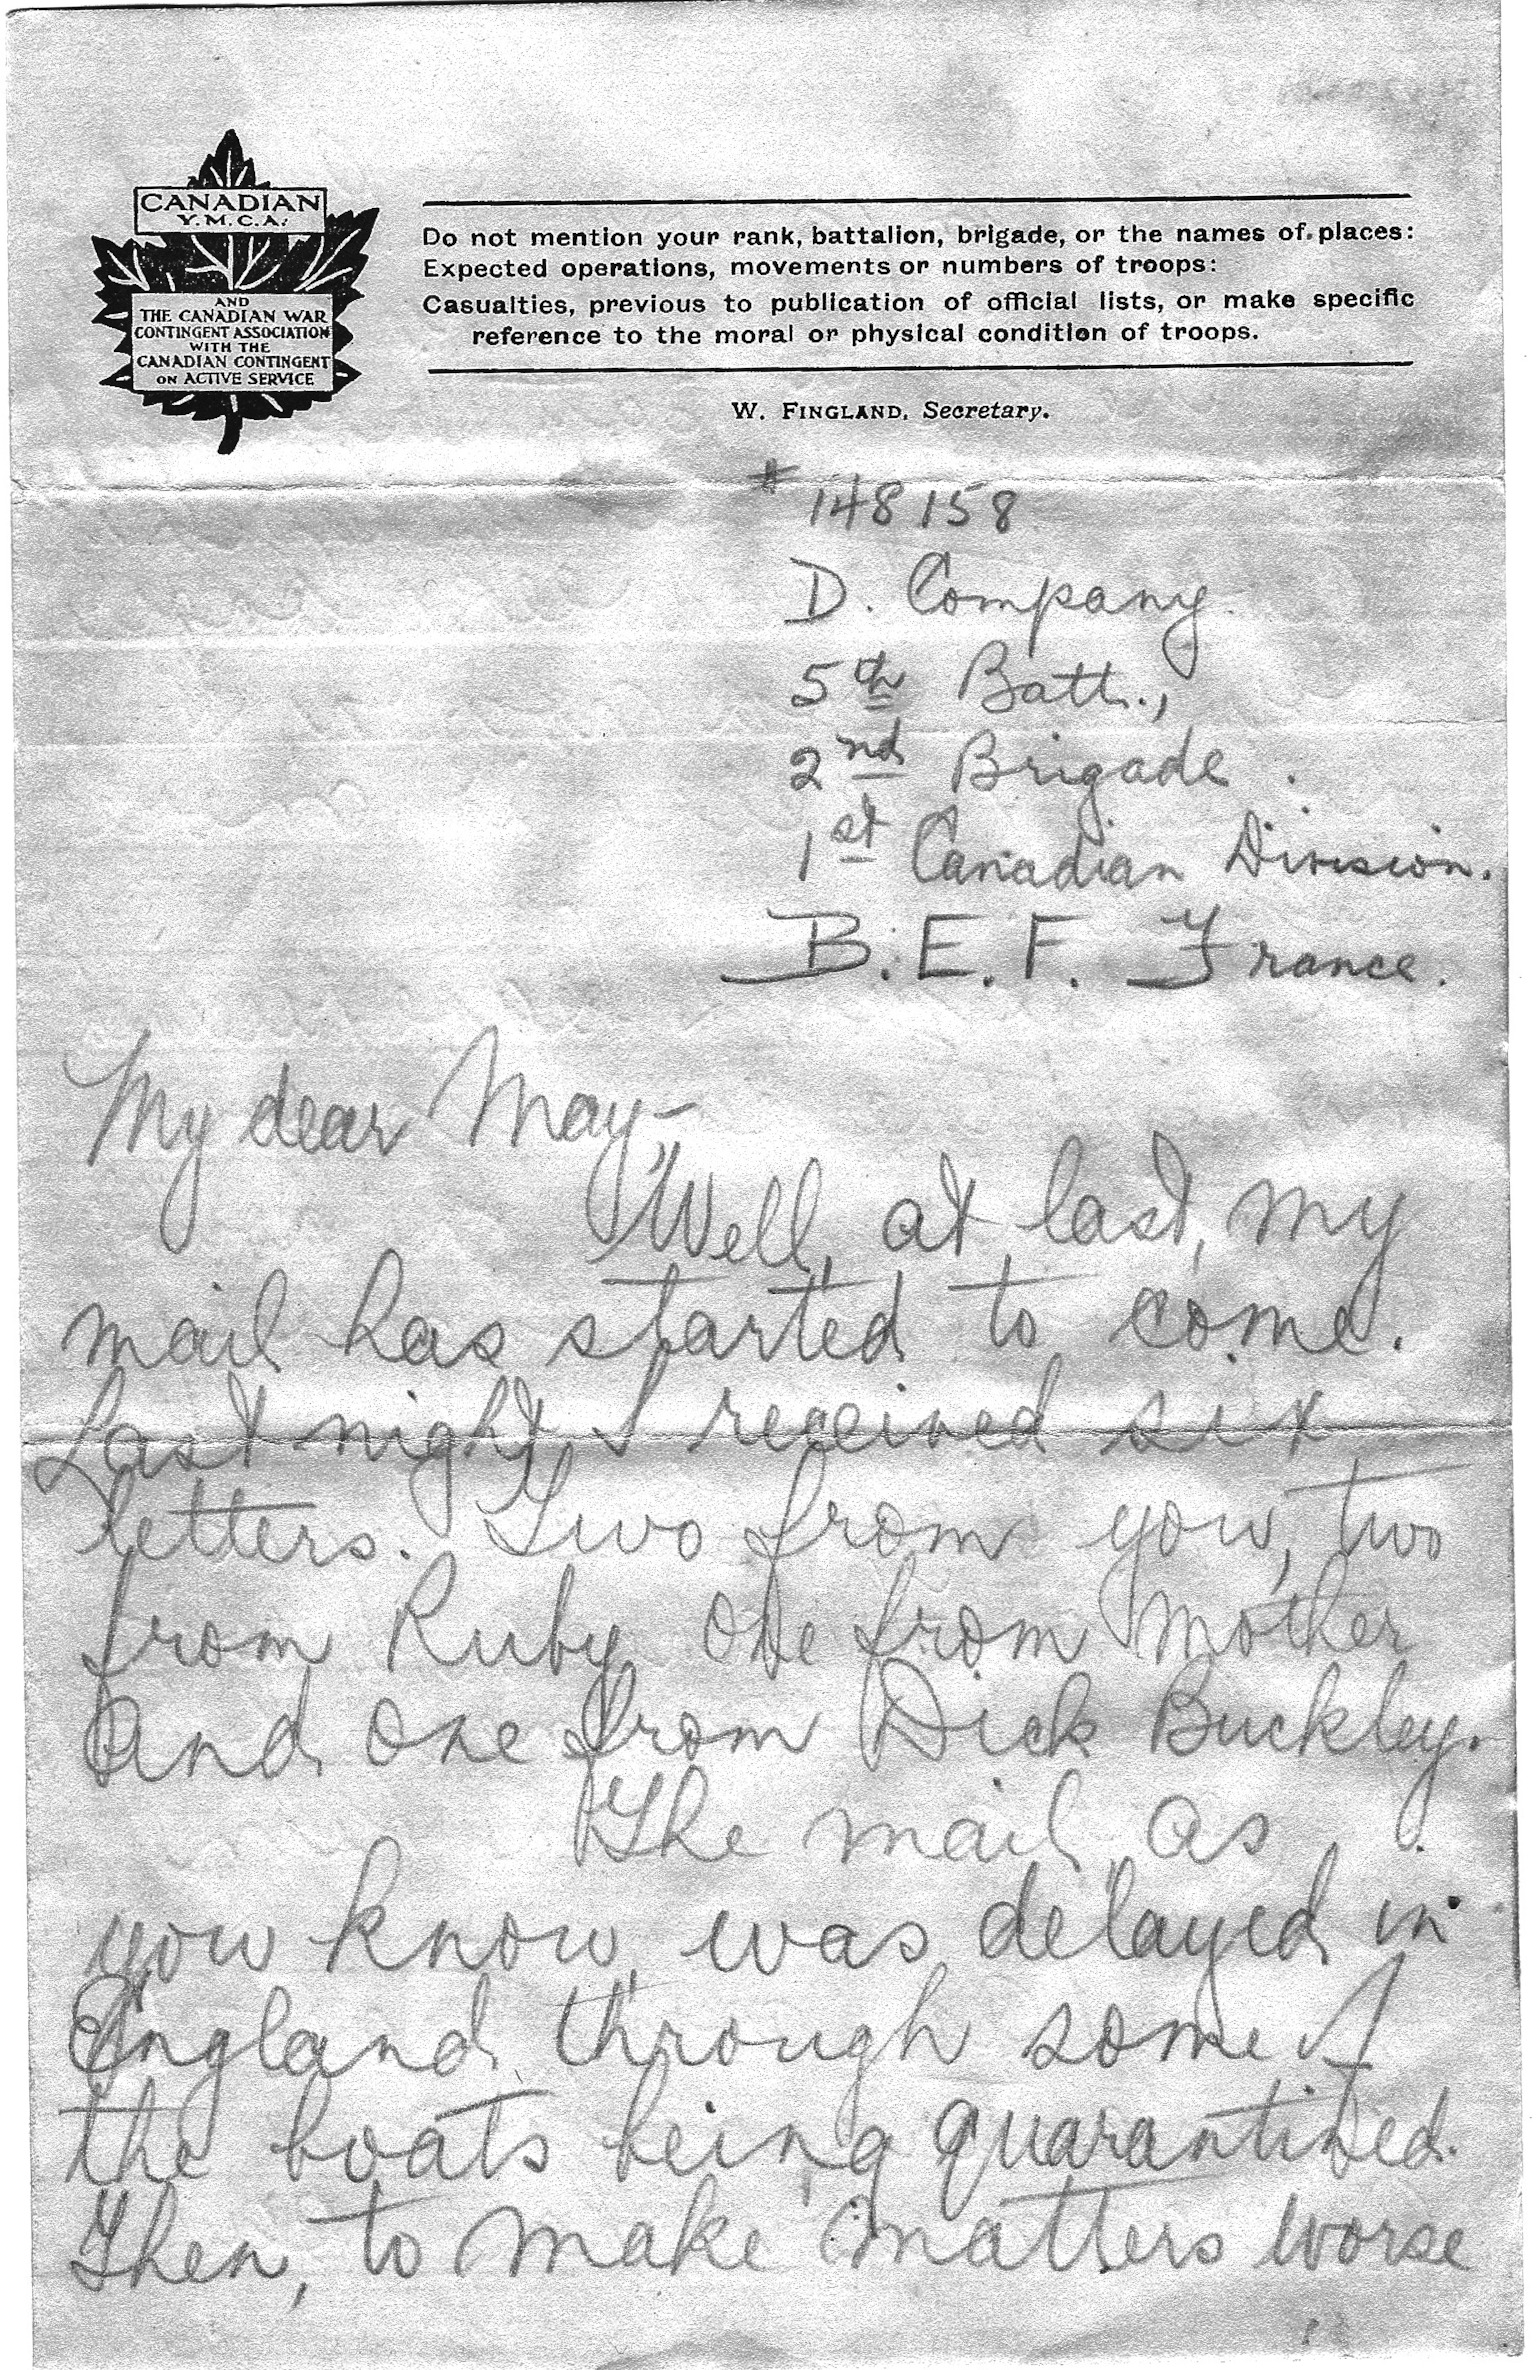 CANADIAN
Y.M.C.A.
AND
THE CANADIAN WAR
CONTINGENT ASSOCIATION
WITH THE
CANADIAN CONTINGENT
ON ACTIVE SERVICE
Do not mention your rank, battalion, brigade, or the names of places:
Expected operations, movements or numbers of troops:
Casualties, previous to publication of official lists, or make specific
reference to the moral or physical condition of troops.
W. FINGLAND, Secretary.
# 148158
D. Company.
5th Batt.,
2nd Brigade.
1st Canadian Division.
B.E.F. France.
My dear May—
Well, at last, my
mail has started to come.
Last night, I received six
letters. Two from you, two
from Ruby, one from Mother
and one from Dick Buckley.
The mail as
you know, was delayed in
England, through some of
the boats being quarantined.
Then, to make matters worse